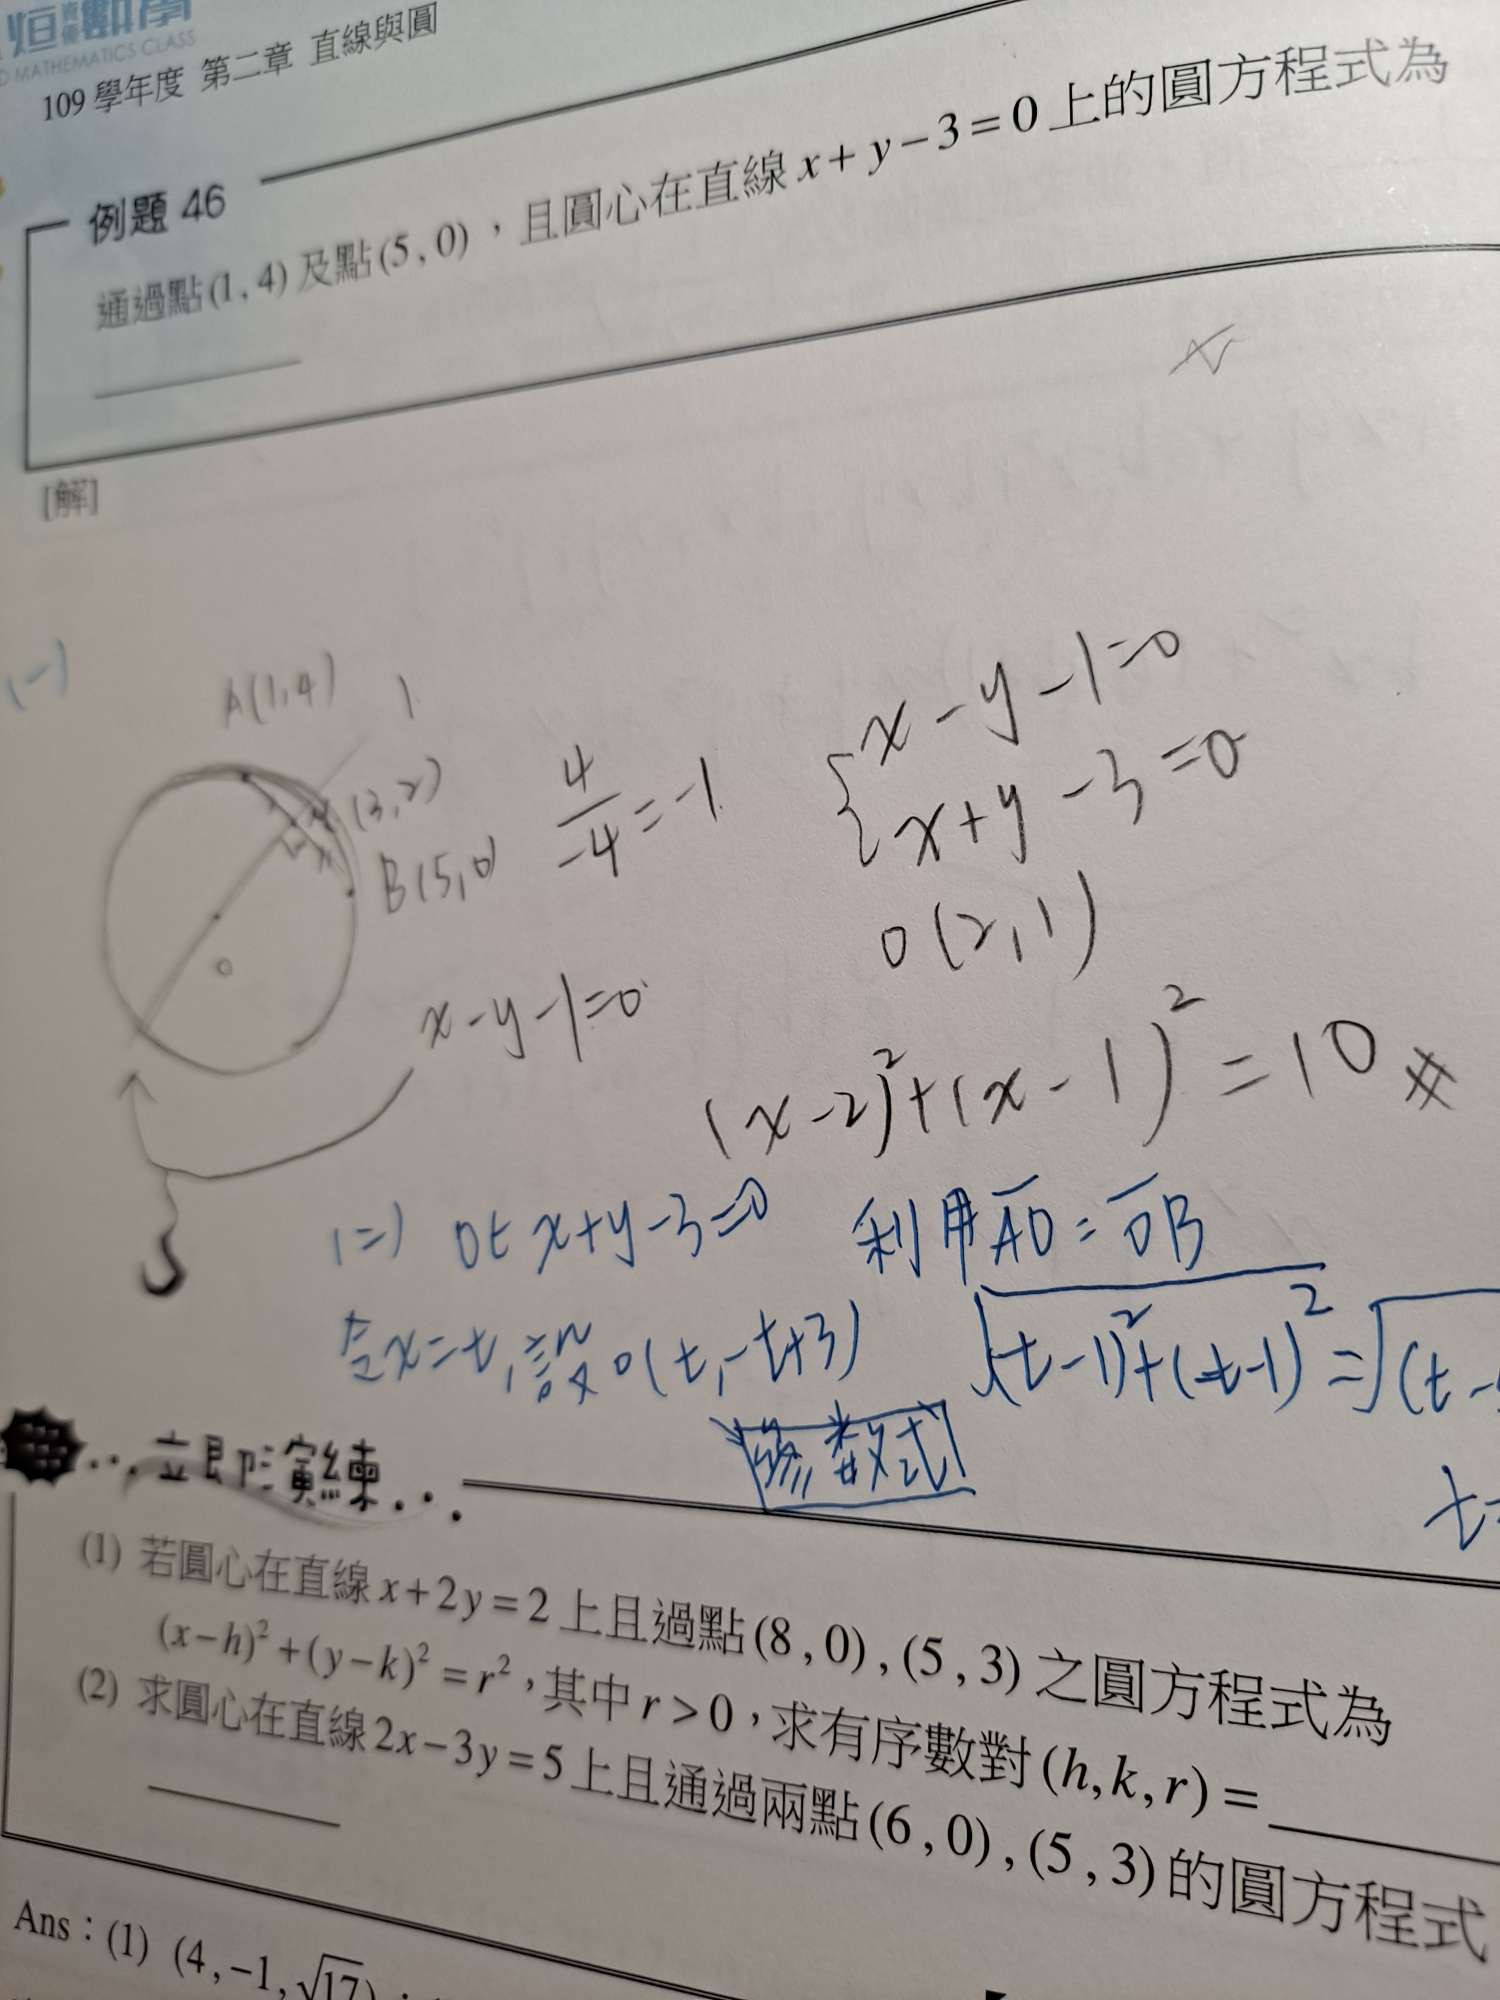 MATHEMATICS CLASS
109 學年度 第二章 直線與圓
例題 46
通過點(1, 4) 及點(5, 0)，且圓心在直線 x + y − 3 = 0 上的圓方程式為
[解]
(一)
A(1,4)
(3,2)
B(5,0)
O
4/-4 = -1
x-y-1=0
x-y-1=0
x+y-3=0
O(2,1)
(x-2)²+(x-1)²=10 #
(二) O在 x+y-3=0 利用 AO = OB
令x=t, 設O(t,-t+3)
√(t-1)²+(-t-1)² = √(t-
參數式
t=
立即演練
(1) 若圓心在直線 x+2y=2 上且過點(8, 0), (5, 3) 之圓方程式為
(x−h)²+(y−k)²=r²，其中 r>0，求有序數對 (h,k,r)=
(2) 求圓心在直線 2x−3y=5 上且通過兩點(6, 0), (5, 3) 的圓方程式
Ans：(1) (4,−1,√17)；